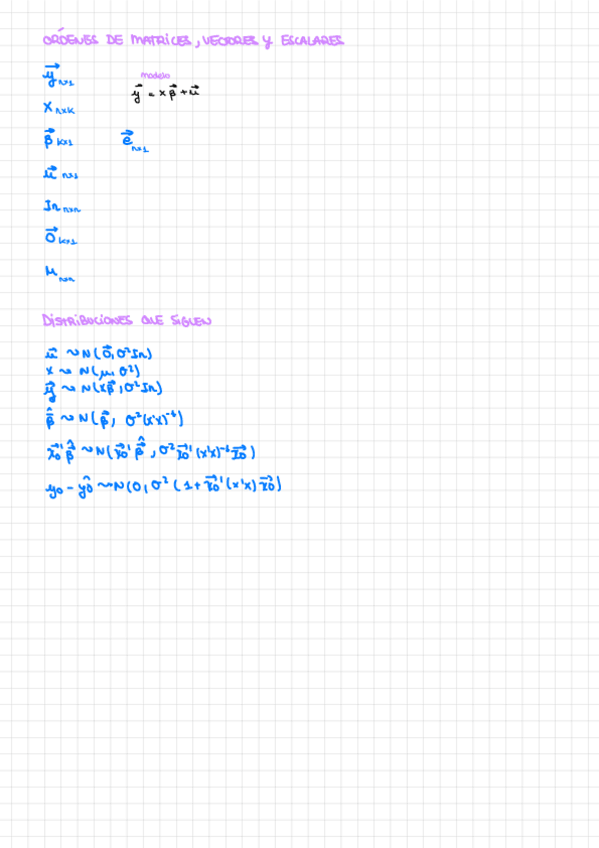 ÓRDENES DE MATRICES, VECTORES Y ESCALARES
y⃗ nx1
modelo
y⃗ = xβ⃗ + u⃗
X nxk
β⃗ kx1 e⃗ nx1
u⃗ nx1
In nxn
0⃗ kx1
M nxn
DISTRIBUCIONES QUE SIGUEN
u⃗ ~ N(0⃗, σ²In)
x ~ N(μ, σ²)
y⃗ ~ N(xβ⃗, σ²In)
β⃗̂ ~ N(β⃗, σ²(x'x)⁻¹)
x⃗₀'β⃗̂ ~ N(x⃗₀'β⃗̂, σ²x⃗₀'(x'x)⁻¹x⃗₀)
y₀ - ŷ₀ ~ N(0, σ²(1+x⃗₀'(x'x)x⃗₀)